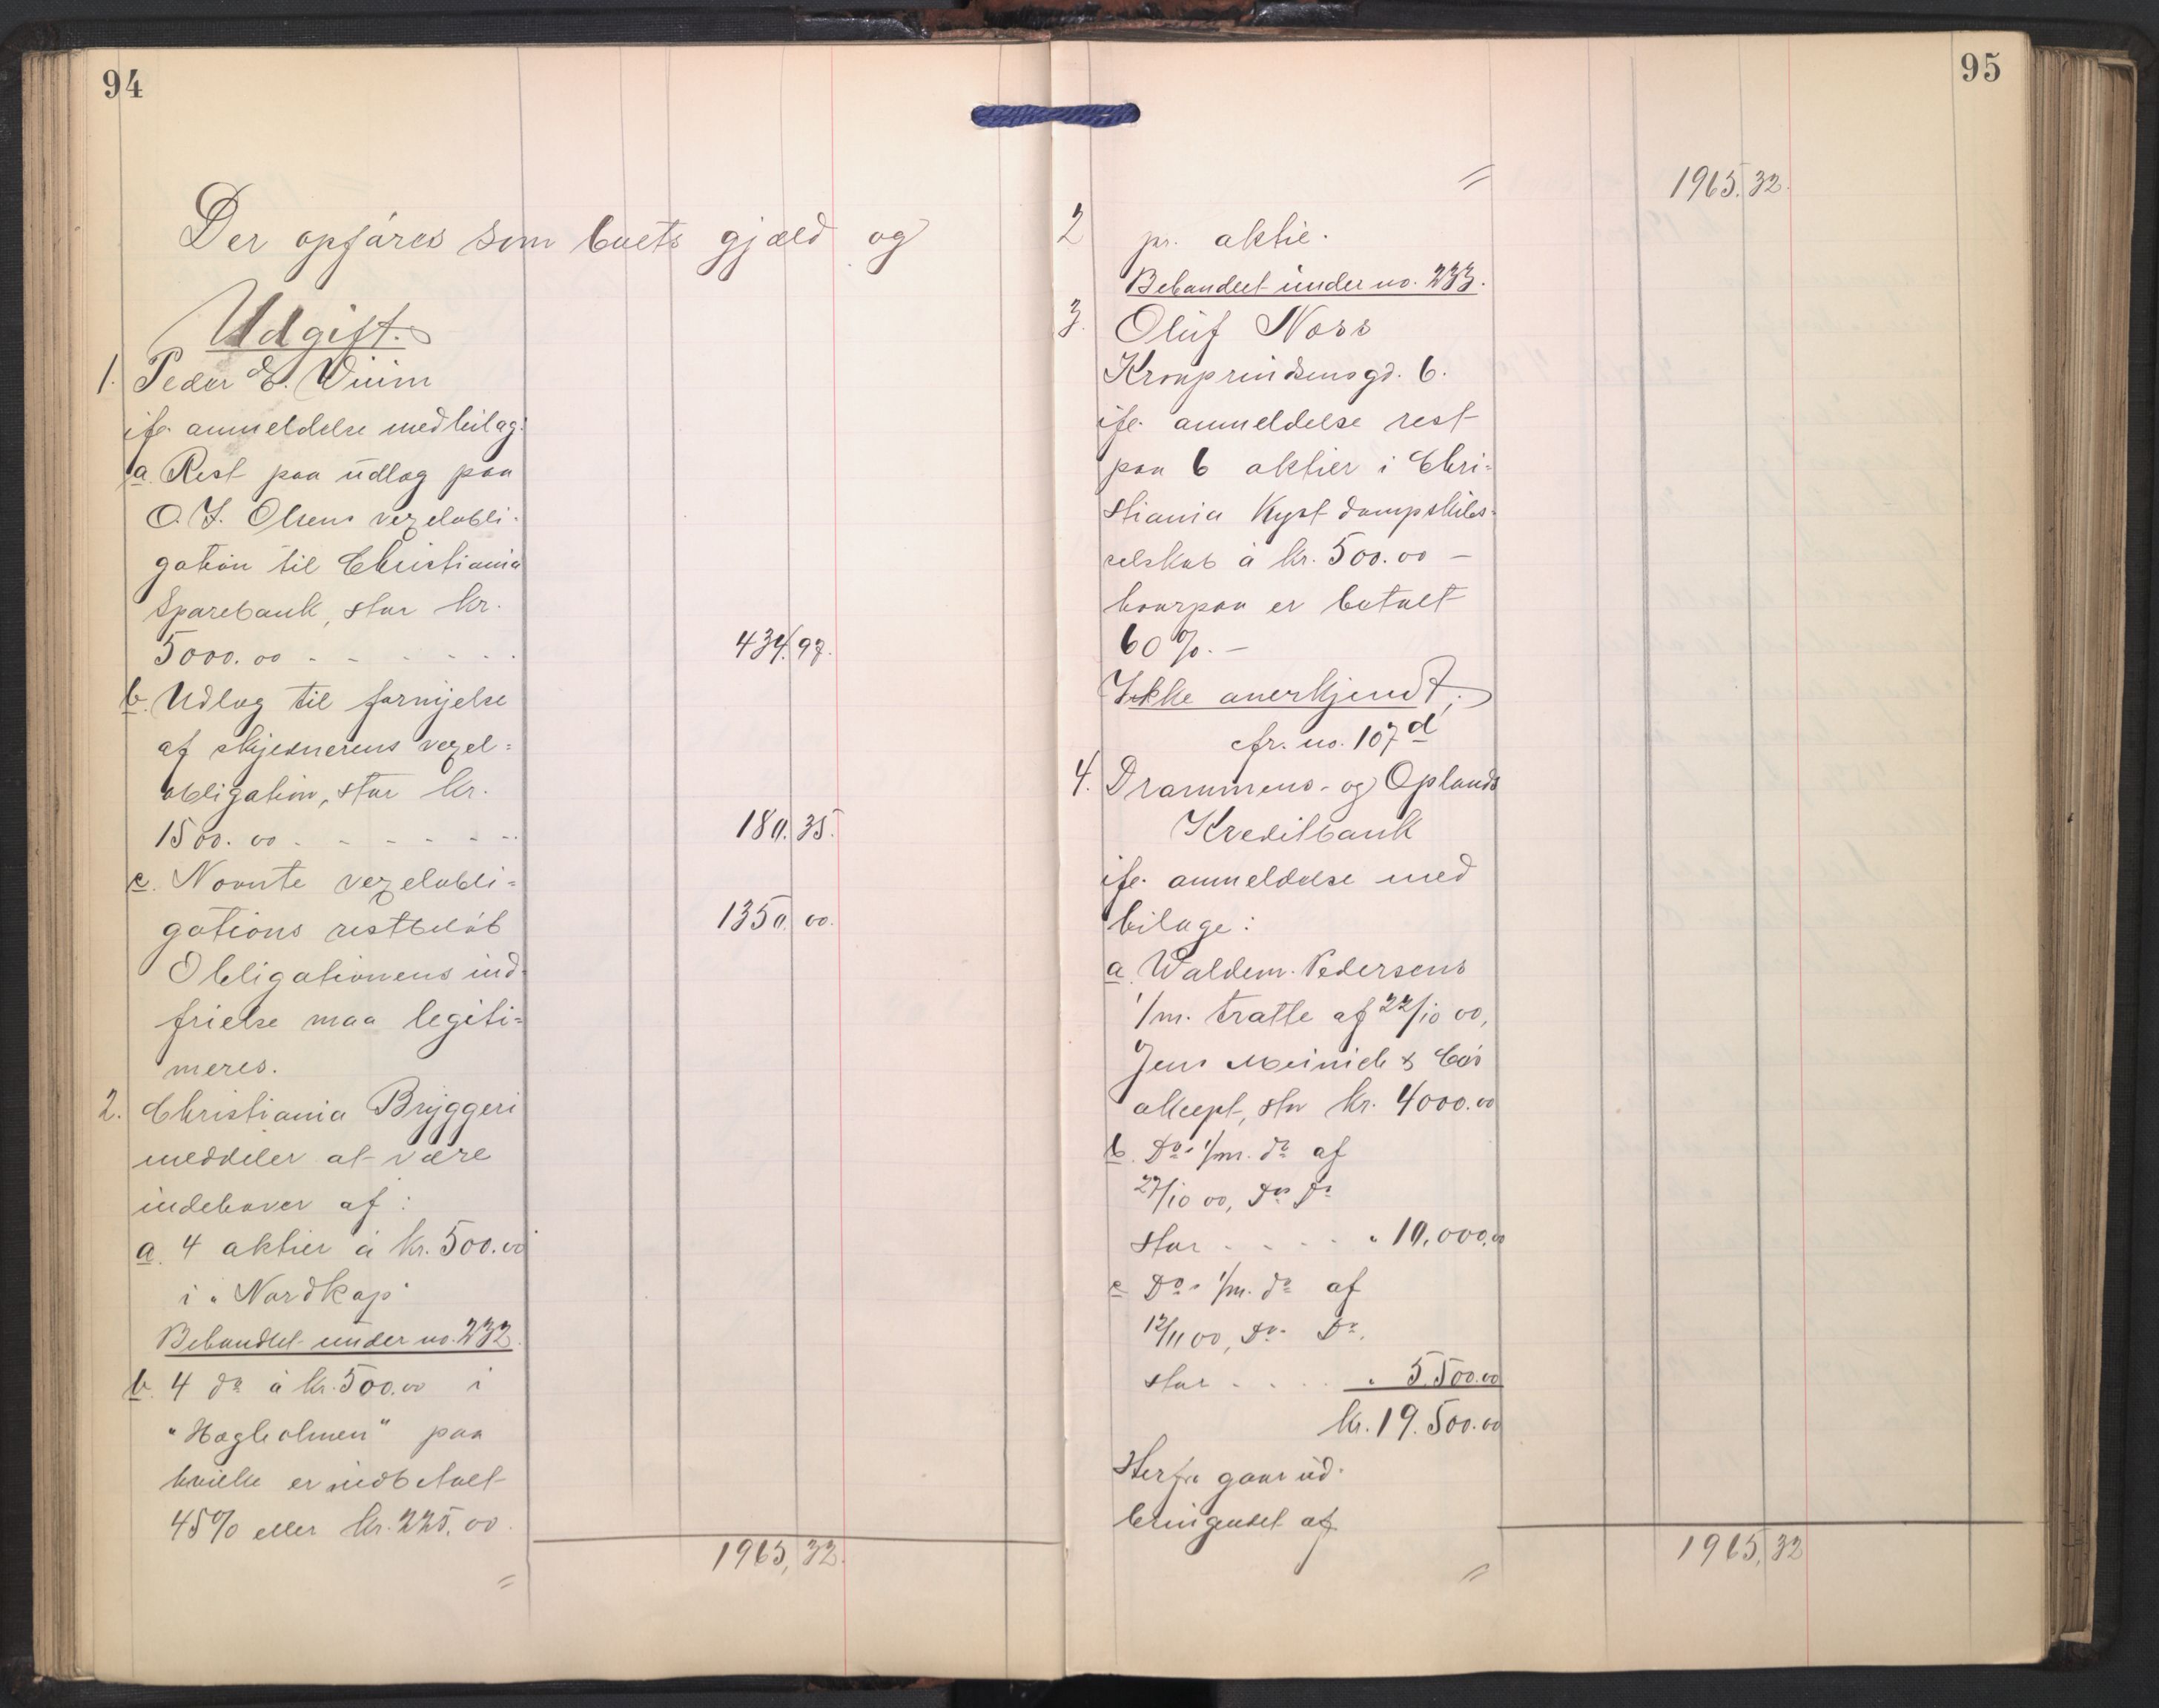 94
Der opføres som boets gjæld og
Udgift.
1. Peder E. Wiium
ifø. anmeldelse med bilag:
a. Rest paa udlæg paa
O. J. Olsens vexelobli-
gation til Christiania
Sparebank, stor kr.
5000.00 - - - - - - 434.97.
b. Udlæg til fornyelse
af skyldnerens vexel=
obligation, stor kr.
1500.00 - - - - - - 180.35.
c. Nævnte vexelobli=
gations restbeløb 1350.00.
Obligationens ind-
frielse maa legiti=
meres.
2. Christiania Bryggeri
meddeler at være
indehaver af:
a. 4 aktier à kr. 500.00
i "Nordkap"
Behandlet under no. 232.
b. 4 do à kr. 500.00 i
"Hægholmen" paa
hvilke er indbetalt
45% eller kr. 225.00.
1965,32.
=
95
= 1965.32.
2 pr. aktie.
Behandlet under no. 233.
3. Oluf Noss
Kronprindsensgd. 6.
ifø. anmeldelse rest
paa 6 aktier i Chri=
stiania Kyst dampskibs=
selskab à kr. 500.00 —
hvorpaa er betalt
60%. —
Ikke anerkjendt;
cfr. no. 107 d
4. Drammens- og Oplands
Kreditbank
ifø. anmeldelse med
bilage:
a. Waldem. Pedersens
1/m. tratte af 22/10 00,
Jens Meinich & Co's
akcept, stor kr. 4000.00
b. Do. 1/m. do af
27/10 00, Do Do
stor - - - - " 10,000.00
c Do. 1/m. do af
12/11 00, Do. Do.
stor - - - - " 5.500.00
kr. 19.500.00
Herfra gaar ud-
bringendet af
1965,32
=